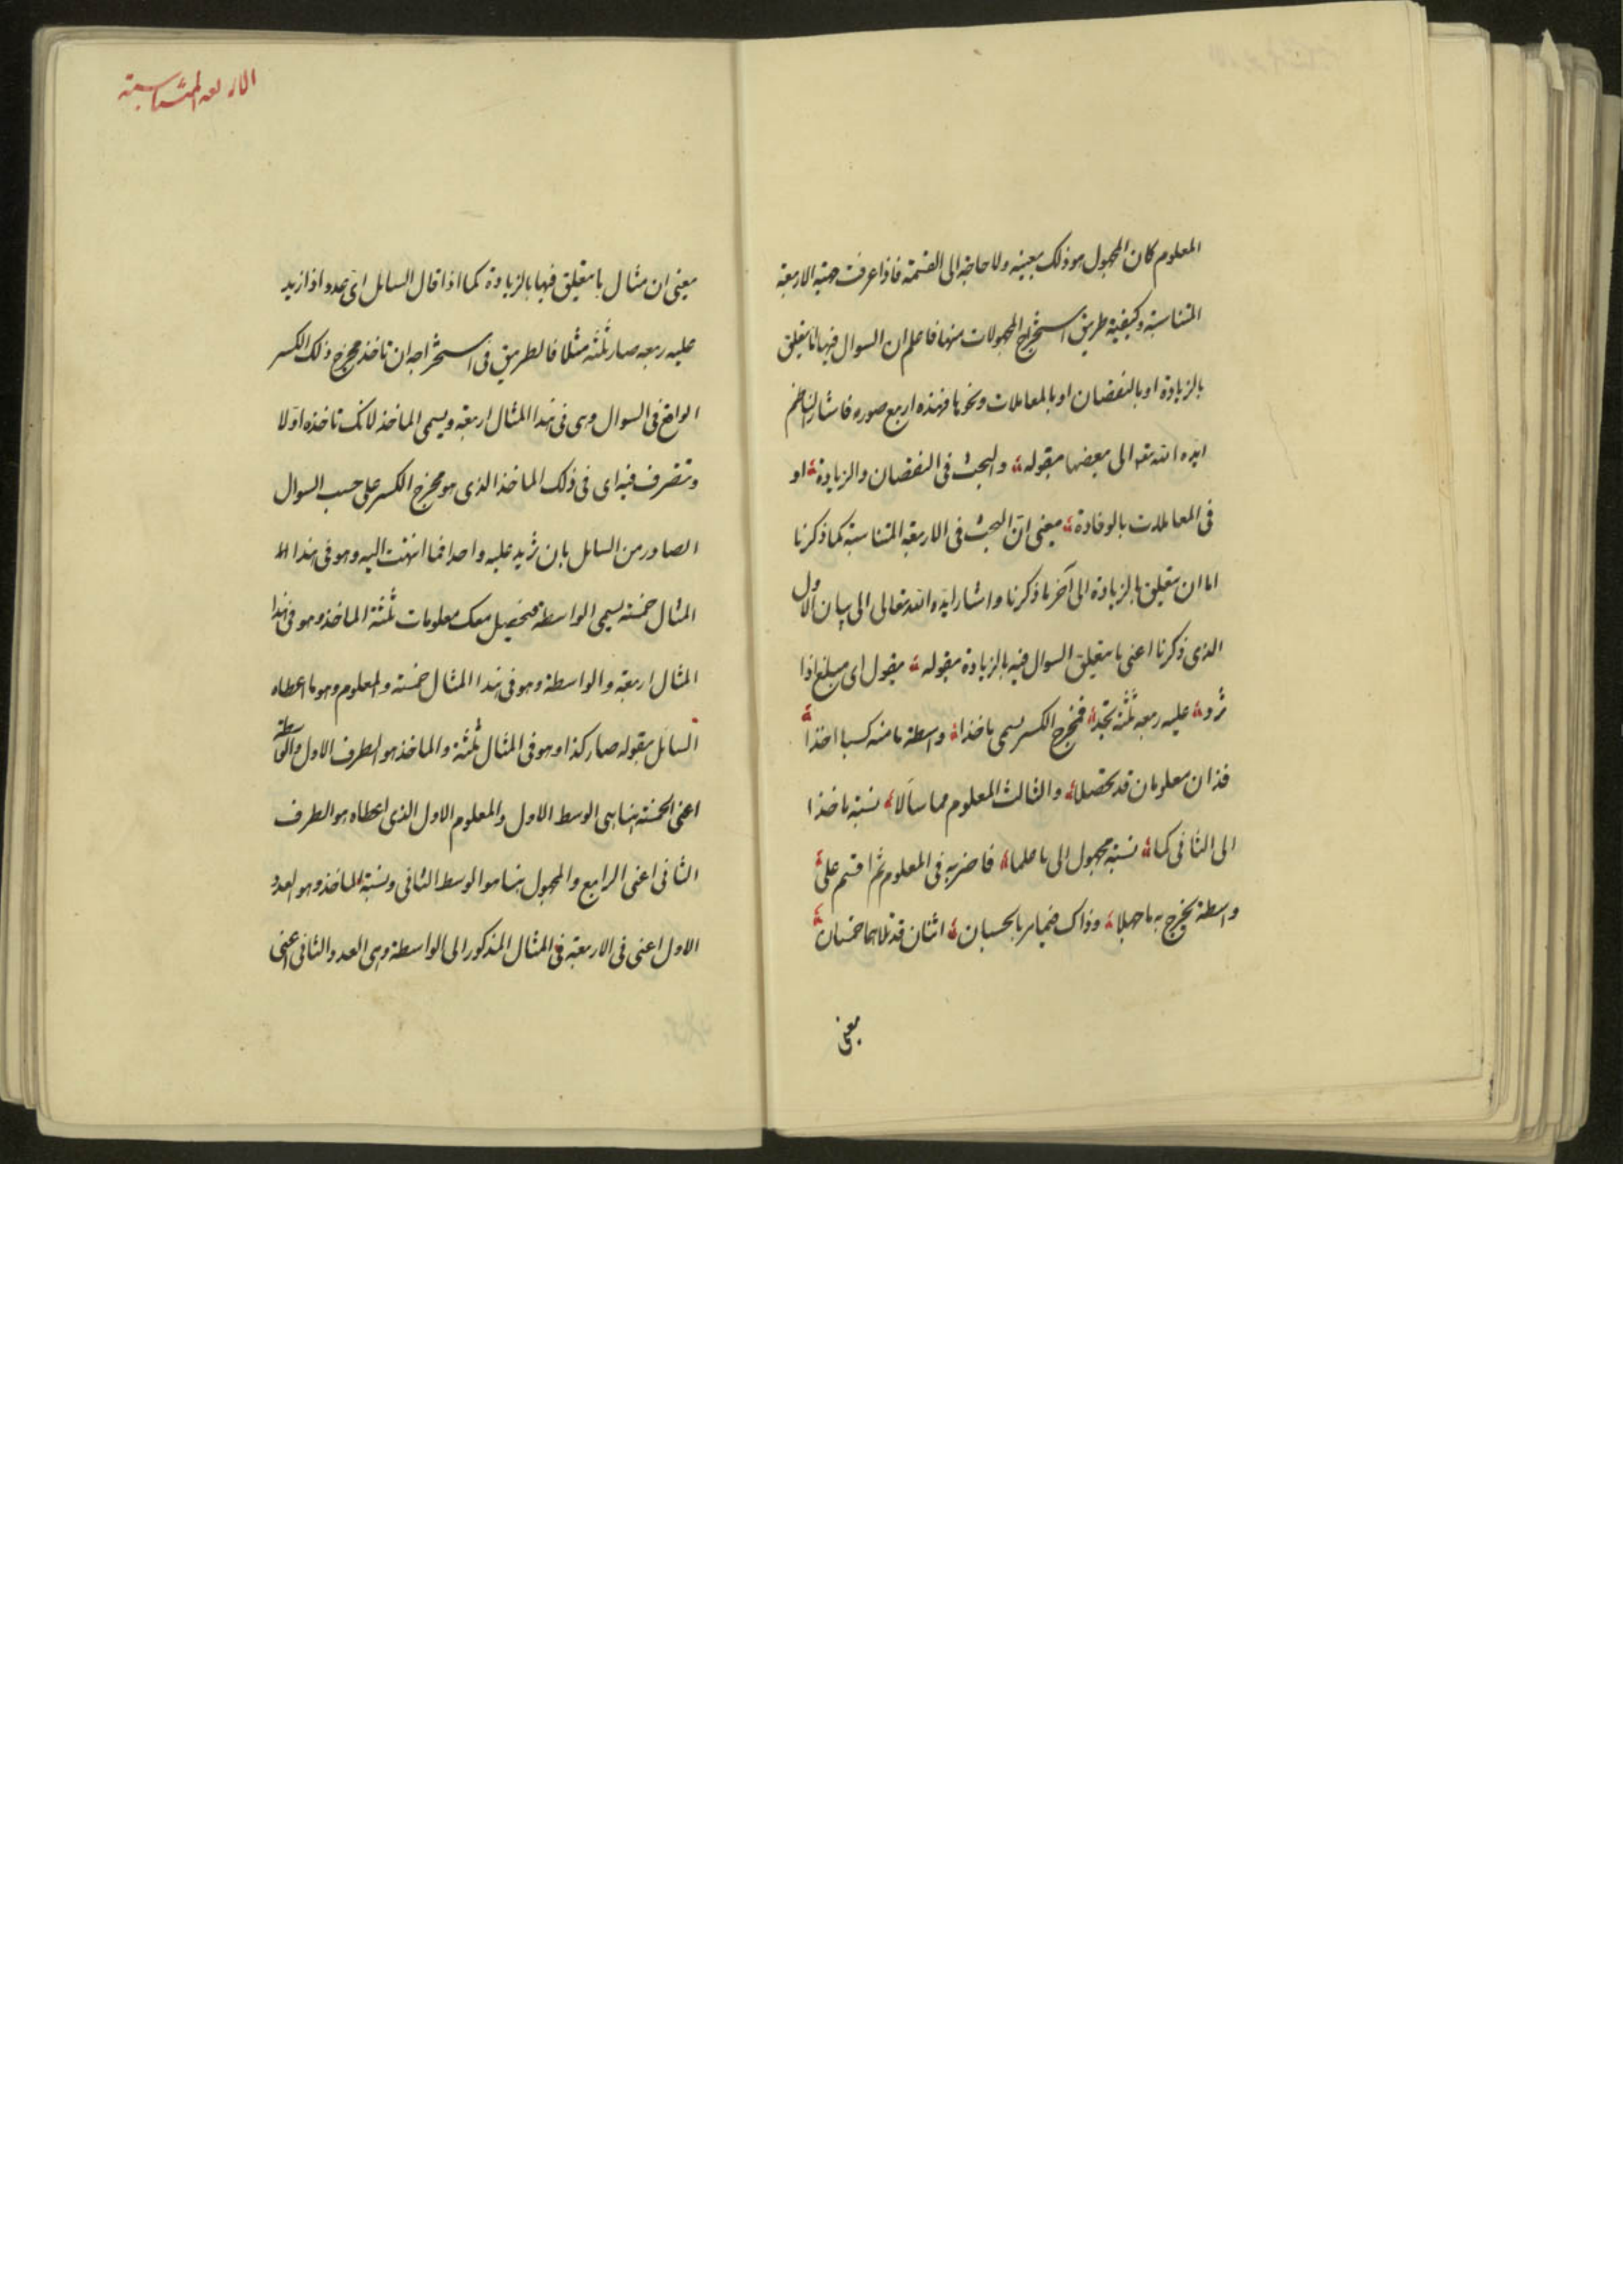 المعلوم كان المجهول هو ذلك بعينه ولا حاجة الى القسمة فاذا عرفت الاربعة
المتناسبة وكيفية طريق استخراج المجهولات منها فاعلم ان السوال فيها اما يتعلق
بالزيادة او بالنقصان او بالمعاملات ونحوها فهذه اربع صور فاشار الناظم
ايده الله تعه الى بعضها بقوله والبحث فى النقصان والزيادة او
فى المعاملات بالوفادة يعنى ان البحث فى الاربعة المتناسبة كما ذكرنا
اما ان يتعلق بالزيادة الى آخر ما ذكرنا واشار ايده الله تعالى الى بيان الاول
الذى ذكرنا اعنى ما يتعلق السوال فيه بالزيادة بقوله يقول اى مبلغ اذا
تزد عليه ربعه ثلثة تجد فمخرج الكسر يسمى ماخذا واسطة ما منه كسبا اخذا
فذان معلومان قد تحصلا والثالث المعلوم مما سألا نسبة ماخذا
الى الثانى كما نسبة مجهول الى ما علما فاضربه فى المعلوم ثم اقسم على
واسطة يخرج به ما جهلا وذاك بالحسبان اثنان قد تلاهما خمسان
يعنى
الاربعه المتناسبة
يعنى ان مثال ما يتعلق فيها بالزيادة كما اذا قال السايل اىّ عدد اذا زيد
عليه ربعه صار ثلثه مثلا فالطريق فى استخراجه ان تاخذ مخرج ذلك الكسر
الواقع فى السوال وهى فى هذا المثال اربعة ويسمى الماخذ لانك تاخذه اولا
وتتصرف فيه اى فى ذلك الماخذ الذى هو مخرج الكسر على حسب السوال
الصادر من السايل بان تزيد عليه واحدا فما انتهت اليه وهو فى هذا
المثال خمسة يسمى الواسطة فتحصل معك معلومات ثلثة الماخذ وهو فى هذا
المثال اربعة والواسطة وهو فى هذا المثال خمسة والمعلوم وهو ما اعطاه
السائل بقوله صار كذا وهو فى المثال ثلثة والماخذ هو الطرف الاول والواسطة
اعنى الخمسة هنا هى الوسط الاول والمعلوم الاول الذى اعطاه هو الطرف
الثانى اعنى الرابع والمجهول هنا هو الوسط الثانى ونسبة الماخذ وهو العدد
الاول اعنى فى الاربعة فى المثال المذكور الى الواسطة وهى العدد الثانى اعنى